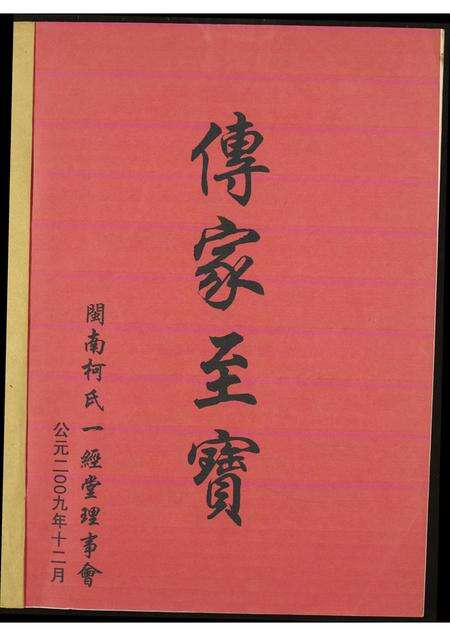 傳家至寶
閩南柯氏一經堂理事會
公元二00九年十二月